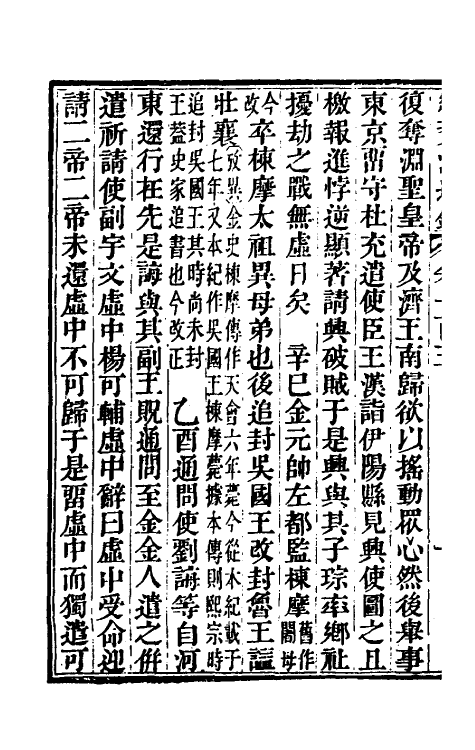 復奪淵聖皇帝及濟王南歸欲以搖動眾心然後舉事
東京畱守杜充遣使臣王漢詣伊陽縣見興使圖之且
檄報進悖逆顯著請興破賊于是興與其子琮率鄉社
擾劫之戰無虛日矣　辛巳金元帥左都監棟摩舊作闍母
今改卒棟摩太祖異母弟也後追封吳國王改封魯王諡
壯襄攷異金史棟摩傳作天會六年薨今從本紀載于
七年又本紀作吳國王棟摩薨據本傳則熙宗時
追封吳國王其時尚未封
王蓋史家追書也今改正　乙酉通問使劉誨等自河
東還行在先是誨與其副王貺通問至金金人遣之倂
遣祈請使副宇文虛中楊可輔虛中辭曰虛中受命迎
請二帝二帝未還虛中不可歸于是畱虛中而獨遣可